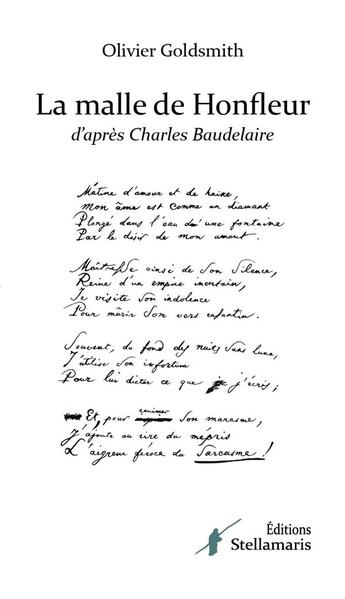 Olivier Goldsmith
La malle de Honfleur
d'après Charles Baudelaire
Mâtine d'amour et de haine,
Mon âme est comme un diamant
Plongé dans l'eau d'une fontaine
Par le désir de mon amant.
Maîtresse ainsi de Son Silence,
Reine d'un empire incertain,
Je visite Son indolence
Pour mûrir Son vers enfantin.
Souvent, du fond des nuits Sans lune,
J'utilise Son infortune
Pour lui dicter ce que j'écris ;
Et, pour ranimer Son marasme,
J'ajoute au rire du mépris
L'aigreur féroce du Sarcasme !
Éditions
Stellamaris